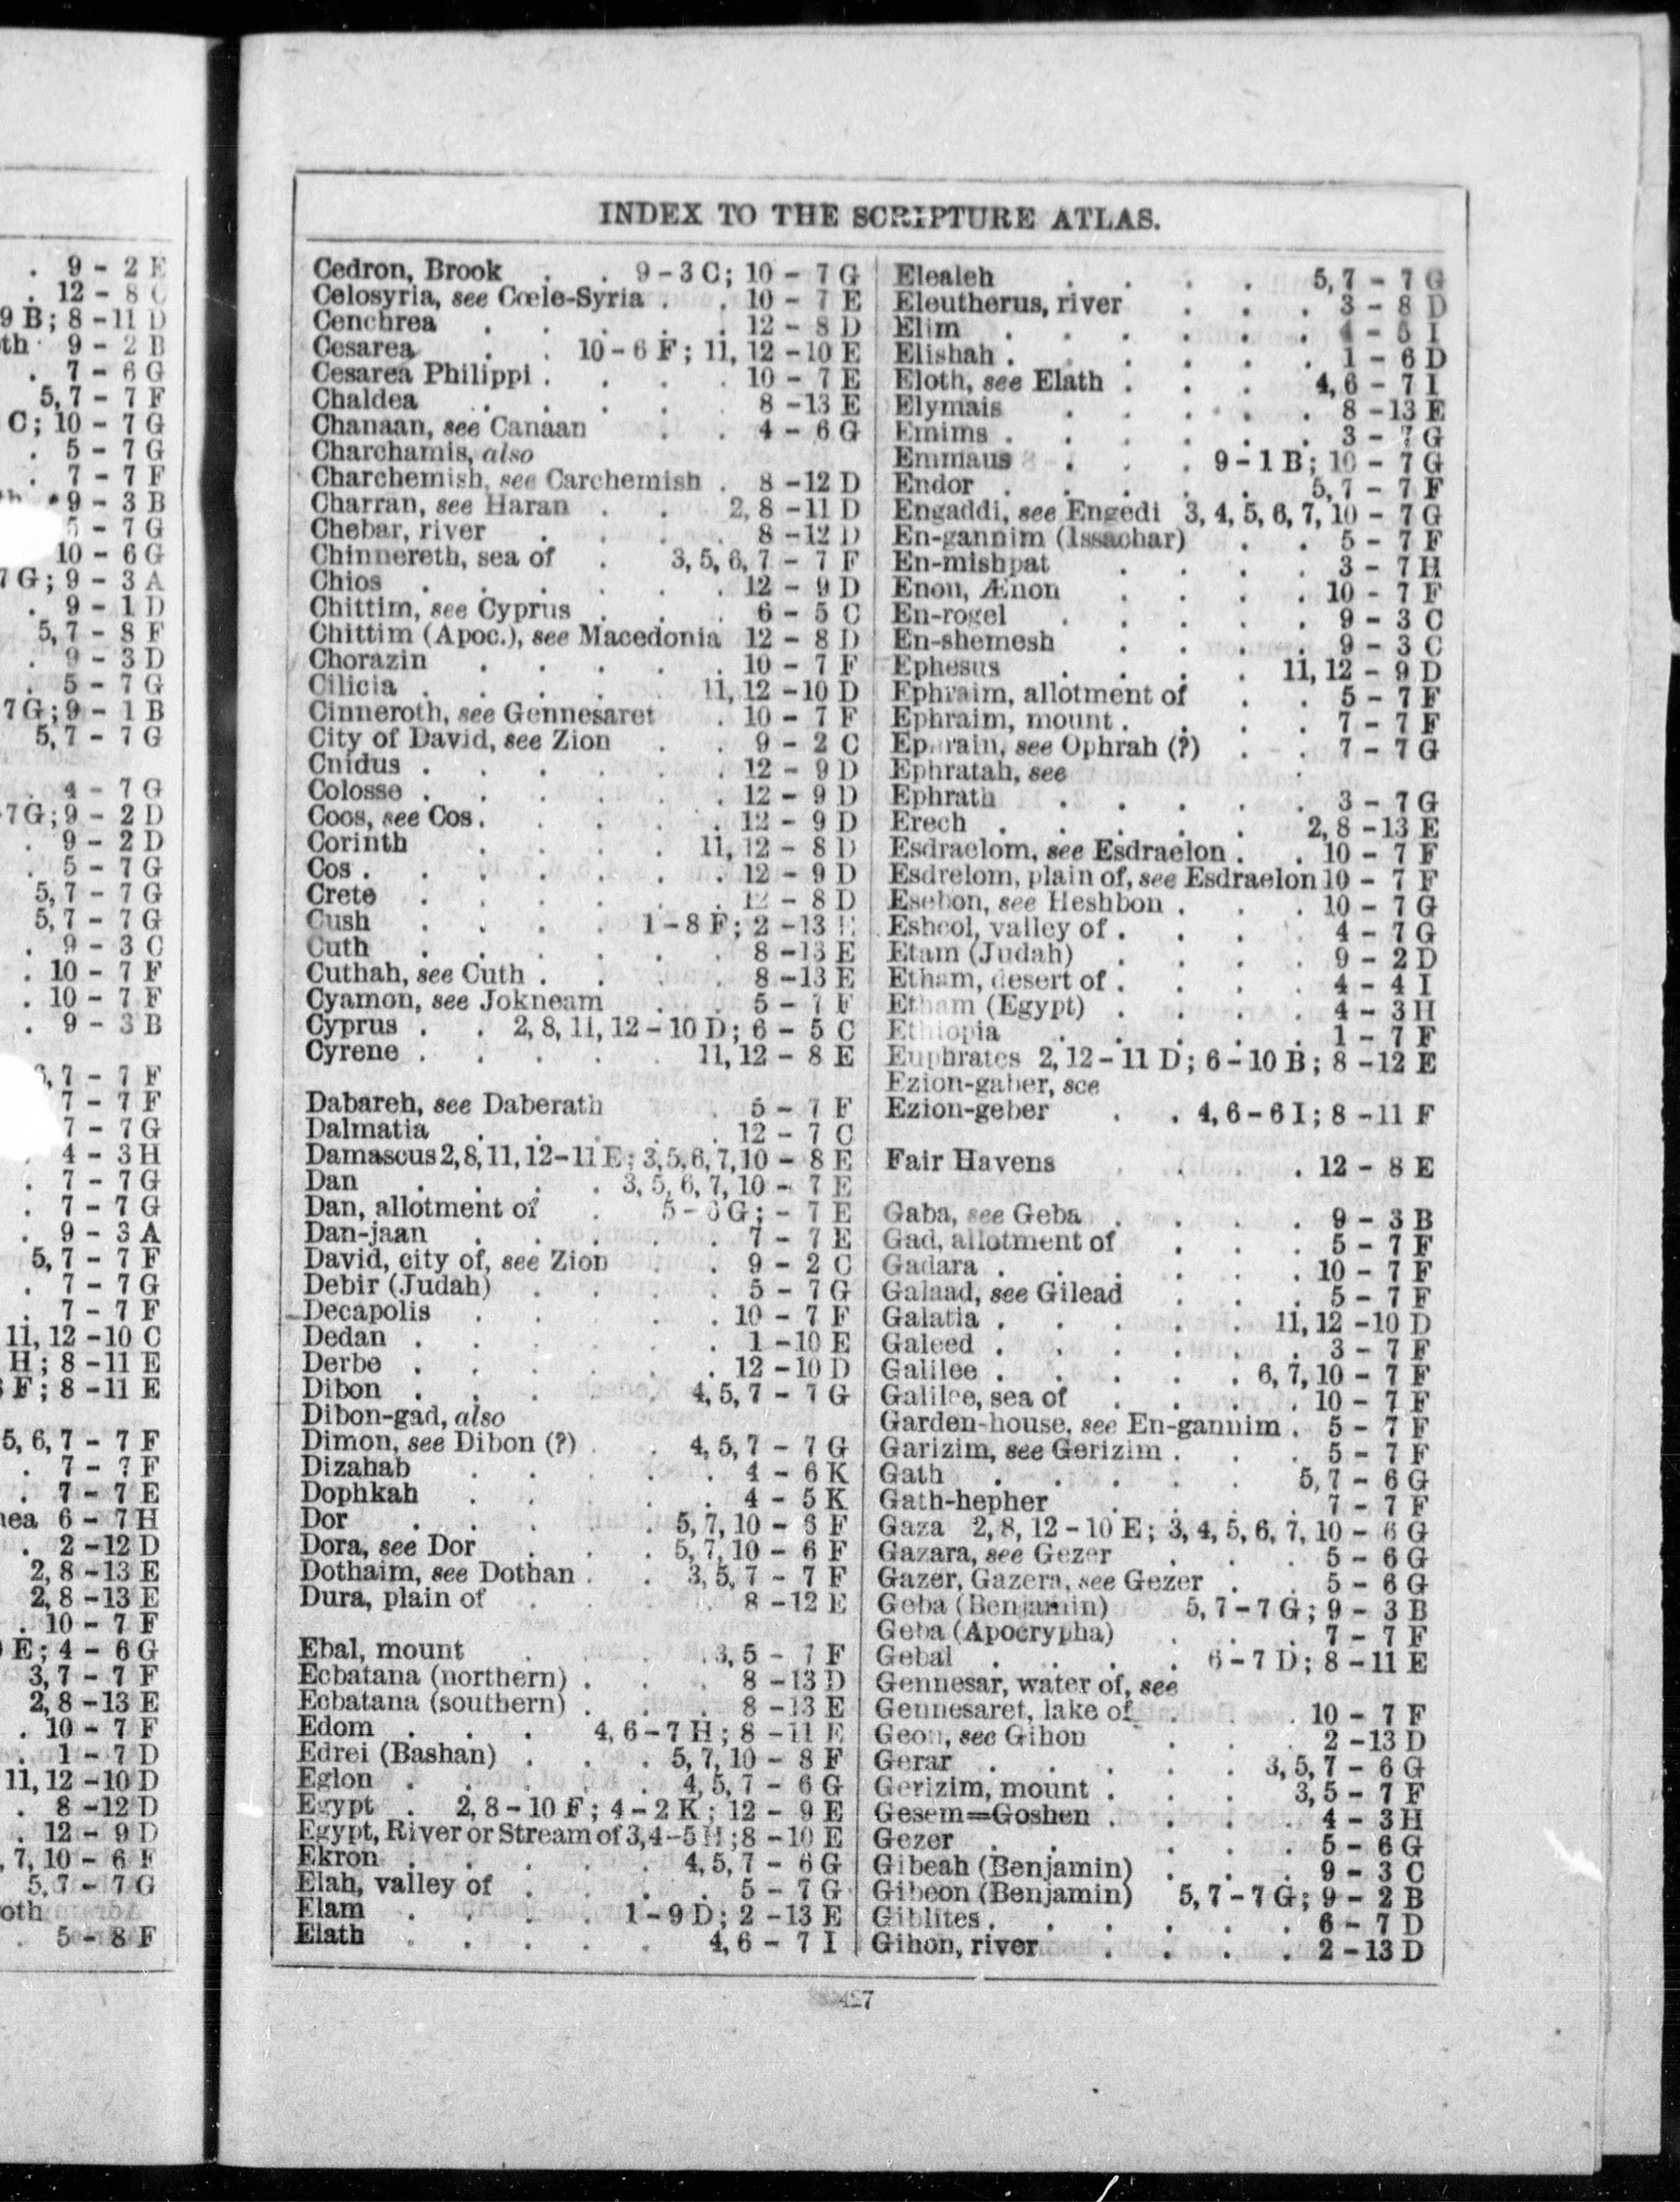 INDEX TO THE SCRIPTURE ATLAS.
Cedron, Brook . . 9 - 3 C; 10 - 7 G
Celosyria, see Cœle-Syria . . 10 - 7 E
Cenchrea . . . . . 12 - 8 D
Cesarea . . 10 - 6 F; 11, 12 - 10 E
Cesarea Philippi . . . . 10 - 7 E
Chaldea . . . . . 8 - 13 E
Chanaan, see Canaan . . 4 - 6 G
Charchamis, also
Charchemish, see Carchemish . 8 - 12 D
Charran, see Haran . . 2, 8 - 11 D
Chebar, river . . . . 8 - 12 D
Chinnereth, sea of . 3, 5, 6, 7 - 7 F
Chios . . . . . . 12 - 9 D
Chittim, see Cyprus . . . 6 - 5 C
Chittim (Apoc.), see Macedonia 12 - 8 D
Chorazin . . . . . 10 - 7 F
Cilicia . . . . . 11, 12 - 10 D
Cinneroth, see Gennesaret . 10 - 7 F
City of David, see Zion . . 9 - 2 C
Cnidus . . . . . . 12 - 9 D
Colosse . . . . . . 12 - 9 D
Coos, see Cos . . . . . 12 - 9 D
Corinth . . . . 11, 12 - 8 D
Cos . . . . . . . 12 - 9 D
Crete . . . . . . 12 - 8 D
Cush . . . . 1 - 8 F; 2 - 13 E
Cuth . . . . . . 8 - 13 E
Cuthah, see Cuth . . . . 8 - 13 E
Cyamon, see Jokneam . . 5 - 7 F
Cyprus . . 2, 8, 11, 12 - 10 D; 6 - 5 C
Cyrene . . . . . 11, 12 - 8 E
Dabareh, see Daberath . 5 - 7 F
Dalmatia . . . . . 12 - 7 C
Damascus 2, 8, 11, 12 - 11 E; 3, 5, 6, 7, 10 - 8 E
Dan . . . . 3, 5, 6, 7, 10 - 7 E
Dan, allotment of . 5 - 6 G; - 7 E
Dan-jaan . . . . . 7 - 7 E
David, city of, see Zion . . 9 - 2 C
Debir (Judah) . . . . 5 - 7 G
Decapolis . . . . . 10 - 7 F
Dedan . . . . . . 1 - 10 E
Derbe . . . . . . 12 - 10 D
Dibon . . . . . 4, 5, 7 - 7 G
Dibon-gad, also
Dimon, see Dibon (?) . . 4, 5, 7 - 7 G
Dizahab . . . . . 4 - 6 K
Dophkah . . . . . 4 - 5 K
Dor . . . . . 5, 7, 10 - 6 F
Dora, see Dor . . . 5, 7, 10 - 6 F
Dothaim, see Dothan . . 3, 5, 7 - 7 F
Dura, plain of . . . . 8 - 12 E
Ebal, mount . . . . 3, 5 - 7 F
Ecbatana (northern) . . . 8 - 13 D
Ecbatana (southern) . . . 8 - 13 E
Edom . . . 4, 6 - 7 H; 8 - 11 E
Edrei (Bashan) . . . 5, 7, 10 - 8 F
Eglon . . . . . 4, 5, 7 - 6 G
Egypt . 2, 8 - 10 F; 4 - 2 K; 12 - 9 E
Egypt, River or Stream of 3, 4 - 5 H; 8 - 10 E
Ekron . . . . . 4, 5, 7 - 6 G
Elah, valley of . . . . 5 - 7 G
Elam . . . . 1 - 9 D; 2 - 13 E
Elath . . . . . 4, 6 - 7 I
Elealeh . . . . 5, 7 - 7 G
Eleutherus, river . . . 3 - 8 D
Elim . . . . . . 4 - 5 I
Elishah . . . . . . 1 - 6 D
Eloth, see Elath . . . 4, 6 - 7 I
Elymais . . . . . 8 - 13 E
Emims . . . . . . 3 - 7 G
Emmaus . . . 9 - 1 B; 10 - 7 G
Endor . . . . . 5, 7 - 7 F
Engaddi, see Engedi 3, 4, 5, 6, 7, 10 - 7 G
En-gannim (Issachar) . . 5 - 7 F
En-mishpat . . . . 3 - 7 H
Enon, Ænon . . . . 10 - 7 F
En-rogel . . . . . 9 - 3 C
En-shemesh . . . . 9 - 3 C
Ephesus . . . . 11, 12 - 9 D
Ephraim, allotment of . . 5 - 7 F
Ephraim, mount . . . . 7 - 7 F
Ephrain, see Ophrah (?) . . 7 - 7 G
Ephratah, see
Ephrath . . . . . 3 - 7 G
Erech . . . . . 2, 8 - 13 E
Esdraelom, see Esdraelon . . 10 - 7 F
Esdrelom, plain of, see Esdraelon 10 - 7 F
Esebon, see Heshbon . . . 10 - 7 G
Eshcol, valley of . . . . 4 - 7 G
Etam (Judah) . . . . 9 - 2 D
Etham, desert of . . . . 4 - 4 I
Etham (Egypt) . . . . 4 - 3 H
Ethiopia . . . . . 1 - 7 F
Euphrates 2, 12 - 11 D; 6 - 10 B; 8 - 12 E
Ezion-gaber, see
Ezion-geber . . 4, 6 - 6 I; 8 - 11 F
Fair Havens . . . . 12 - 8 E
Gaba, see Geba . . . . 9 - 3 B
Gad, allotment of . . . 5 - 7 F
Gadara . . . . . . 10 - 7 F
Galaad, see Gilead . . . 5 - 7 F
Galatia . . . . . 11, 12 - 10 D
Galeed . . . . . . 3 - 7 F
Galilee . . . . . 6, 7, 10 - 7 F
Galilee, sea of . . . . 10 - 7 F
Garden-house, see En-gannim . 5 - 7 F
Garizim, see Gerizim . . . 5 - 7 F
Gath . . . . . 5, 7 - 6 G
Gath-hepher . . . . 7 - 7 F
Gaza 2, 8, 12 - 10 E; 3, 4, 5, 6, 7, 10 - 6 G
Gazara, see Gezer . . . 5 - 6 G
Gazer, Gazera, see Gezer . . 5 - 6 G
Geba (Benjamin) 5, 7 - 7 G; 9 - 3 B
Geba (Apocrypha) . . . 7 - 7 F
Gebal . . . . 6 - 7 D; 8 - 11 E
Gennesar, water of, see
Gennesaret, lake of . . . 10 - 7 F
Geon, see Gihon . . . 2 - 13 D
Gerar . . . . . 3, 5, 7 - 6 G
Gerizim, mount . . . 3, 5 - 7 F
Gesem=Goshen . . . . 4 - 3 H
Gezer . . . . . . 5 - 6 G
Gibeah (Benjamin) . . . 9 - 3 C
Gibeon (Benjamin) 5, 7 - 7 G; 9 - 2 B
Giblites . . . . . . 6 - 7 D
Gihon, river . . . . 2 - 13 D
427